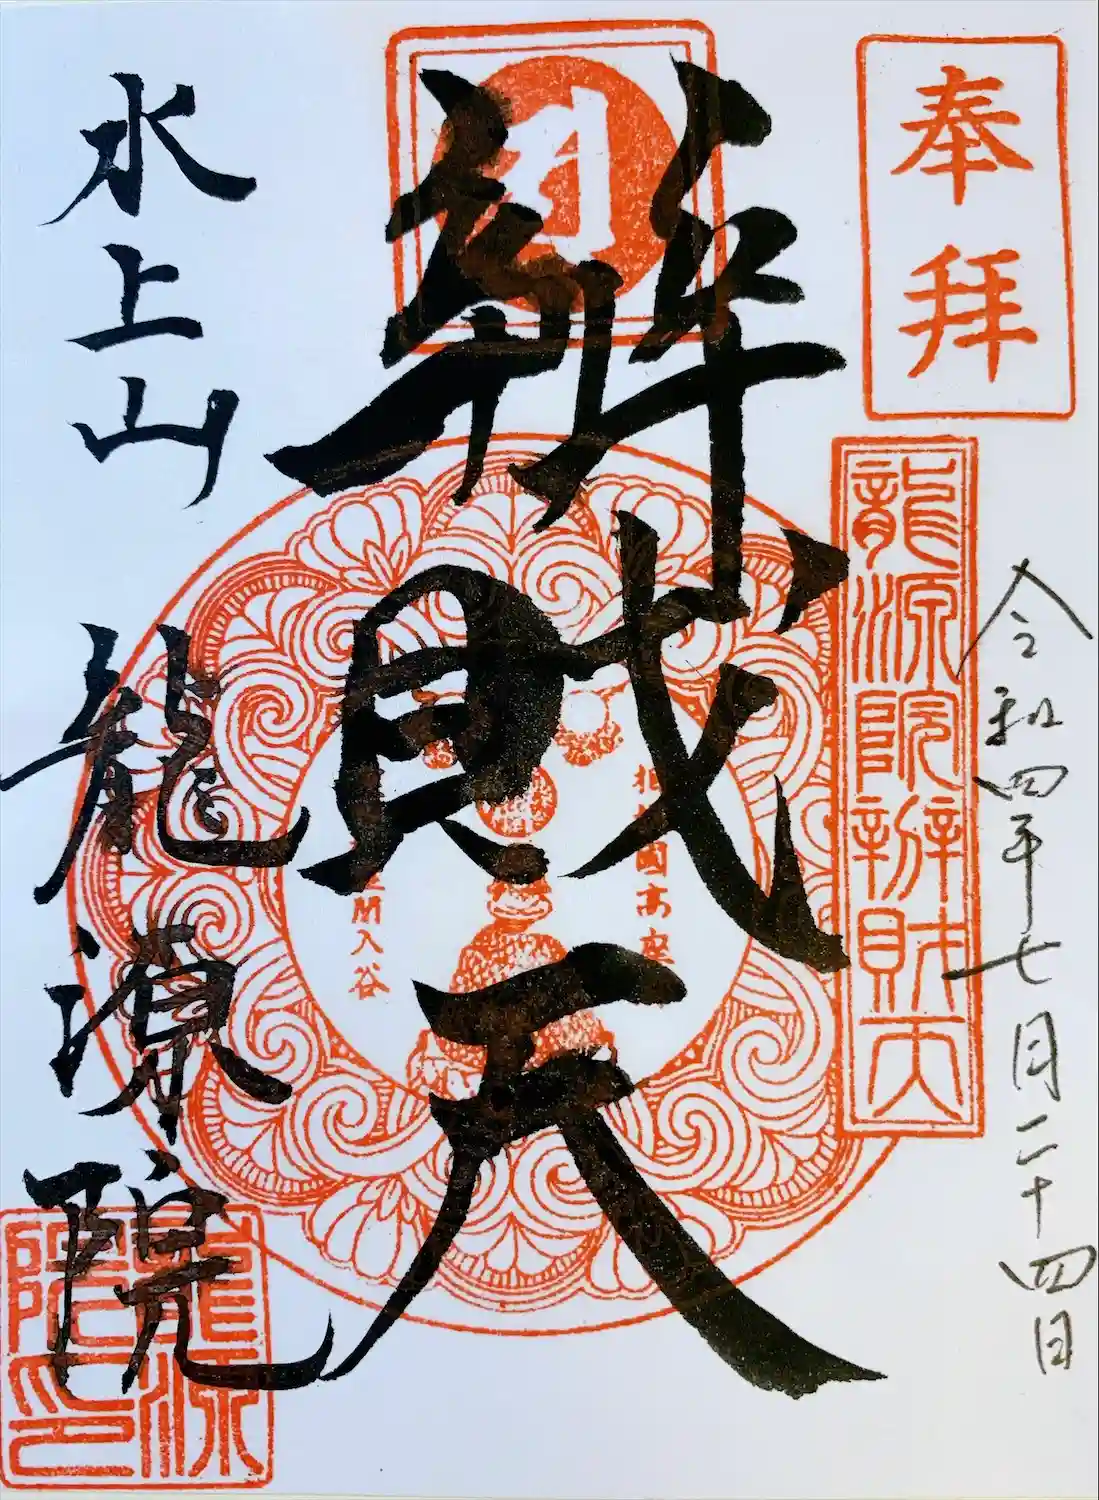 奉拝
龍源院辨財天
令和四年七月二十四日
辨財天
國高座
開入谷
水上山
龍源院
龍源
院印